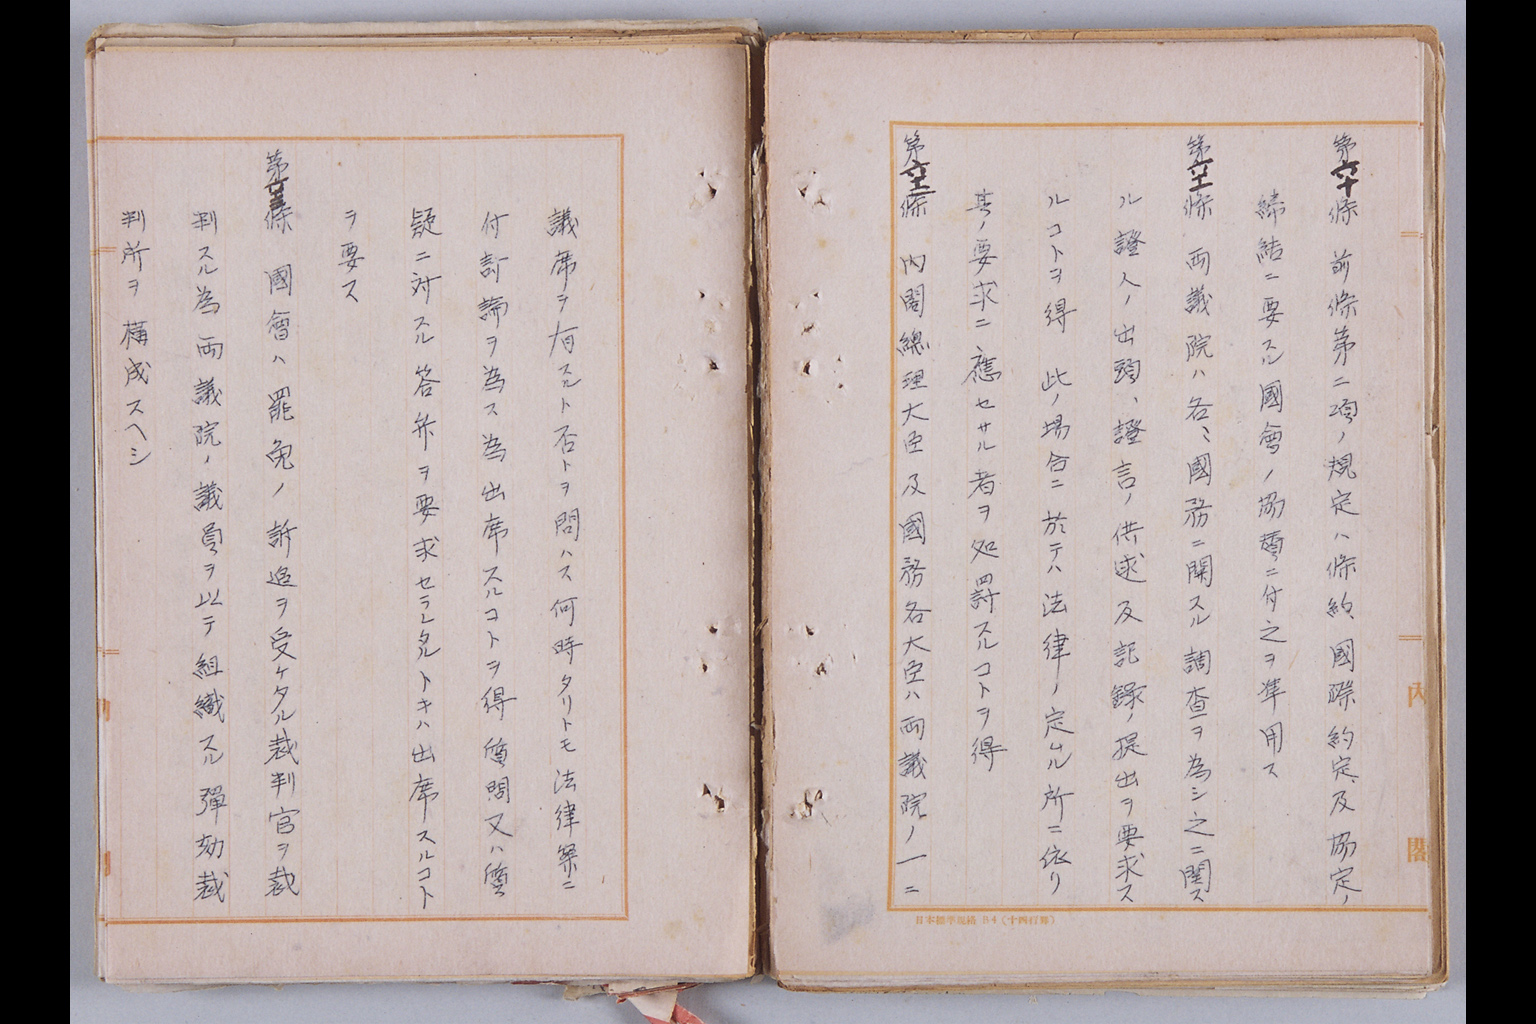 第六十條 前條第二項ノ規定ハ條約、國際約定及協定ノ
締結ニ要スル國會ノ協賛ニ付之ヲ準用ス
第六十一條 両議院ハ各〻國務ニ関スル調査ヲ為シ之ニ関ス
ル證人ノ出頭、證言ノ供述及記録ノ提出ヲ要求ス
ルコトヲ得 此ノ場合ニ於テハ法律ノ定ムル所ニ依リ
其ノ要求ニ應セサル者ヲ処罰スルコトヲ得
第六十二條 内閣總理大臣及國務各大臣ハ両議院ノ一ニ
内閣
日本標準規格 B4(十四行罫)
議席ヲ有スルト否トヲ問ハス何時タリトモ法律案ニ
付討論ヲ為ス為出席スルコトヲ得 質問又ハ質
疑ニ対スル答弁ヲ要求セラレタルトキハ出席スルコト
ヲ要ス
第六十三條 國會ハ罷免ノ訴追ヲ受ケタル裁判官ヲ裁
判スル為両議院ノ議員ヲ以テ組織スル彈劾裁
判所ヲ構成スヘシ